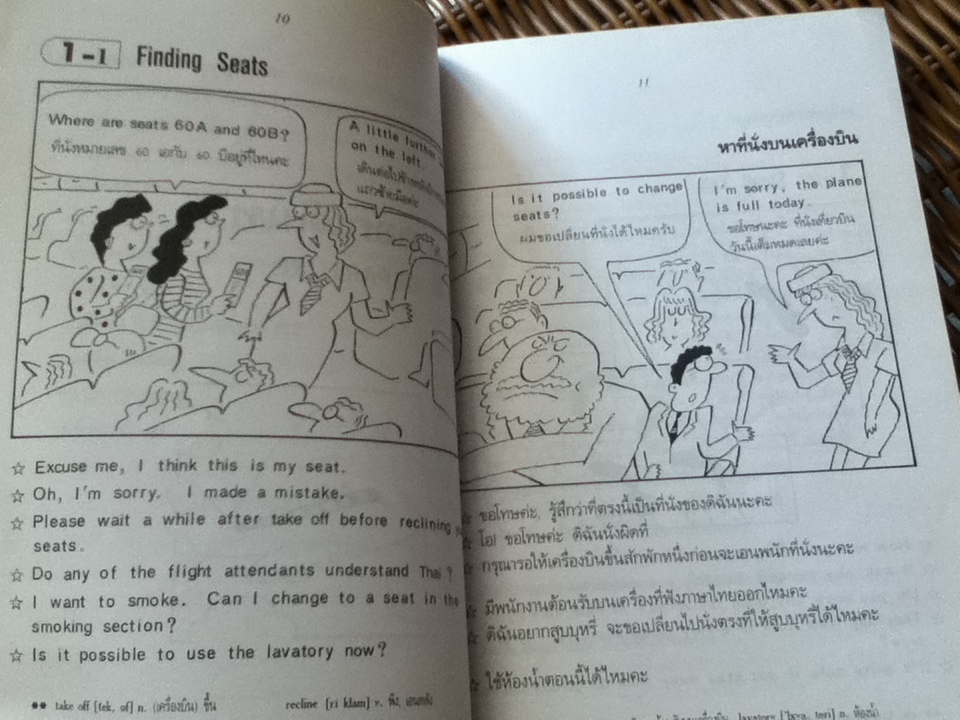 10
1-1 Finding Seats
Where are seats 60A and 60B?
ที่นั่งหมายเลข ๖๐ เอกับ ๖๐ บีอยู่ที่ไหนคะ
A little further
on the left.
แถวซ้ายมือค่ะ
☆ Excuse me, I think this is my seat.
☆ Oh, I'm sorry. I made a mistake.
☆ Please wait a while after take off before reclining
seats.
☆ Do any of the flight attendants understand Thai?
☆ I want to smoke. Can I change to a seat in the
smoking section?
☆ Is it possible to use the lavatory now?
** take off [tek, of] n. (เครื่องบิน) ขึ้น recline [ri klam] v. พิง, เอนหลัง
11
หาที่นั่งบนเครื่องบิน
Is it possible to change
seats?
ผมขอเปลี่ยนที่นั่งได้ไหมครับ
I'm sorry, the plane
is full today.
ขอโทษนะคะ ที่นั่งเที่ยวบิน
วันนี้เต็มหมดเลยค่ะ
☆ ขอโทษค่ะ, รู้สึกว่าที่ตรงนี้เป็นที่นั่งของดิฉันนะคะ
☆ โอ! ขอโทษค่ะ ดิฉันนั่งผิดที่
☆ กรุณารอให้เครื่องบินขึ้นสักพักหนึ่งก่อนจะเอนพนักที่นั่งนะคะ
☆ มีพนักงานต้อนรับบนเครื่องที่ฟังภาษาไทยออกไหมคะ
☆ ดิฉันอยากสูบบุหรี่ จะขอเปลี่ยนไปนั่งตรงที่ให้สูบบุหรี่ได้ไหมคะ
☆ ใช้ห้องน้ำตอนนี้ได้ไหมคะ
lavatory ['lava, teri] n. ห้องน้ำ